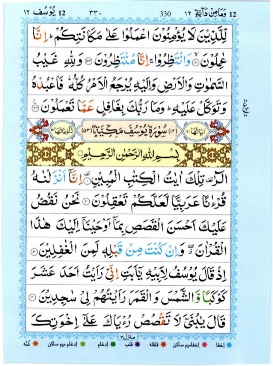 ١٢ يُوسُف 12 ٣٣٠ 330 وَمَا مِنْ دَآبَّةٍ ١٢ 12
لِّلَّذِيْنَ لَا يُؤْمِنُوْنَ اعْمَلُوْا عَلٰى مَكَانَتِكُمْ ؕ اِنَّا
عٰمِلُوْنَ ۙ وَانْتَظِرُوْا ۚ اِنَّا مُنْتَظِرُوْنَ وَلِلّٰهِ غَيْبُ
السَّمٰوٰتِ وَالْاَرْضِ وَاِلَيْهِ يُرْجَعُ الْاَمْرُ كُلُّهٗ فَاعْبُدْهُ
وَتَوَكَّلْ عَلَيْهِ ؕ وَمَا رَبُّكَ بِغَافِلٍ عَمَّا تَعْمَلُوْنَ
سُوْرَةُ يُوْسُفَ مَكِّيَّةٌ
بِسْمِ اللّٰهِ الرَّحْمٰنِ الرَّحِيْمِ
الٓرٰ ۚ تِلْكَ اٰيٰتُ الْكِتٰبِ الْمُبِيْنِ اِنَّاۤ اَنْزَلْنٰهُ
قُرْءٰنًا عَرَبِيًّا لَّعَلَّكُمْ تَعْقِلُوْنَ نَحْنُ نَقُصُّ
عَلَيْكَ اَحْسَنَ الْقَصَصِ بِمَاۤ اَوْحَيْنَاۤ اِلَيْكَ هٰذَا
الْقُرْاٰنَ ۖ وَاِنْ كُنْتَ مِنْ قَبْلِهٖ لَمِنَ الْغٰفِلِيْنَ
اِذْ قَالَ يُوْسُفُ لِاَبِيْهِ يٰۤاَبَتِ اِنِّىْ رَاَيْتُ اَحَدَ عَشَرَ
كَوْكَبًا وَّالشَّمْسَ وَالْقَمَرَ رَاَيْتُهُمْ لِىْ سٰجِدِيْنَ
قَالَ يٰبُنَىَّ لَا تَقْصُصْ رُءْيَاكَ عَلٰۤى اِخْوَتِكَ